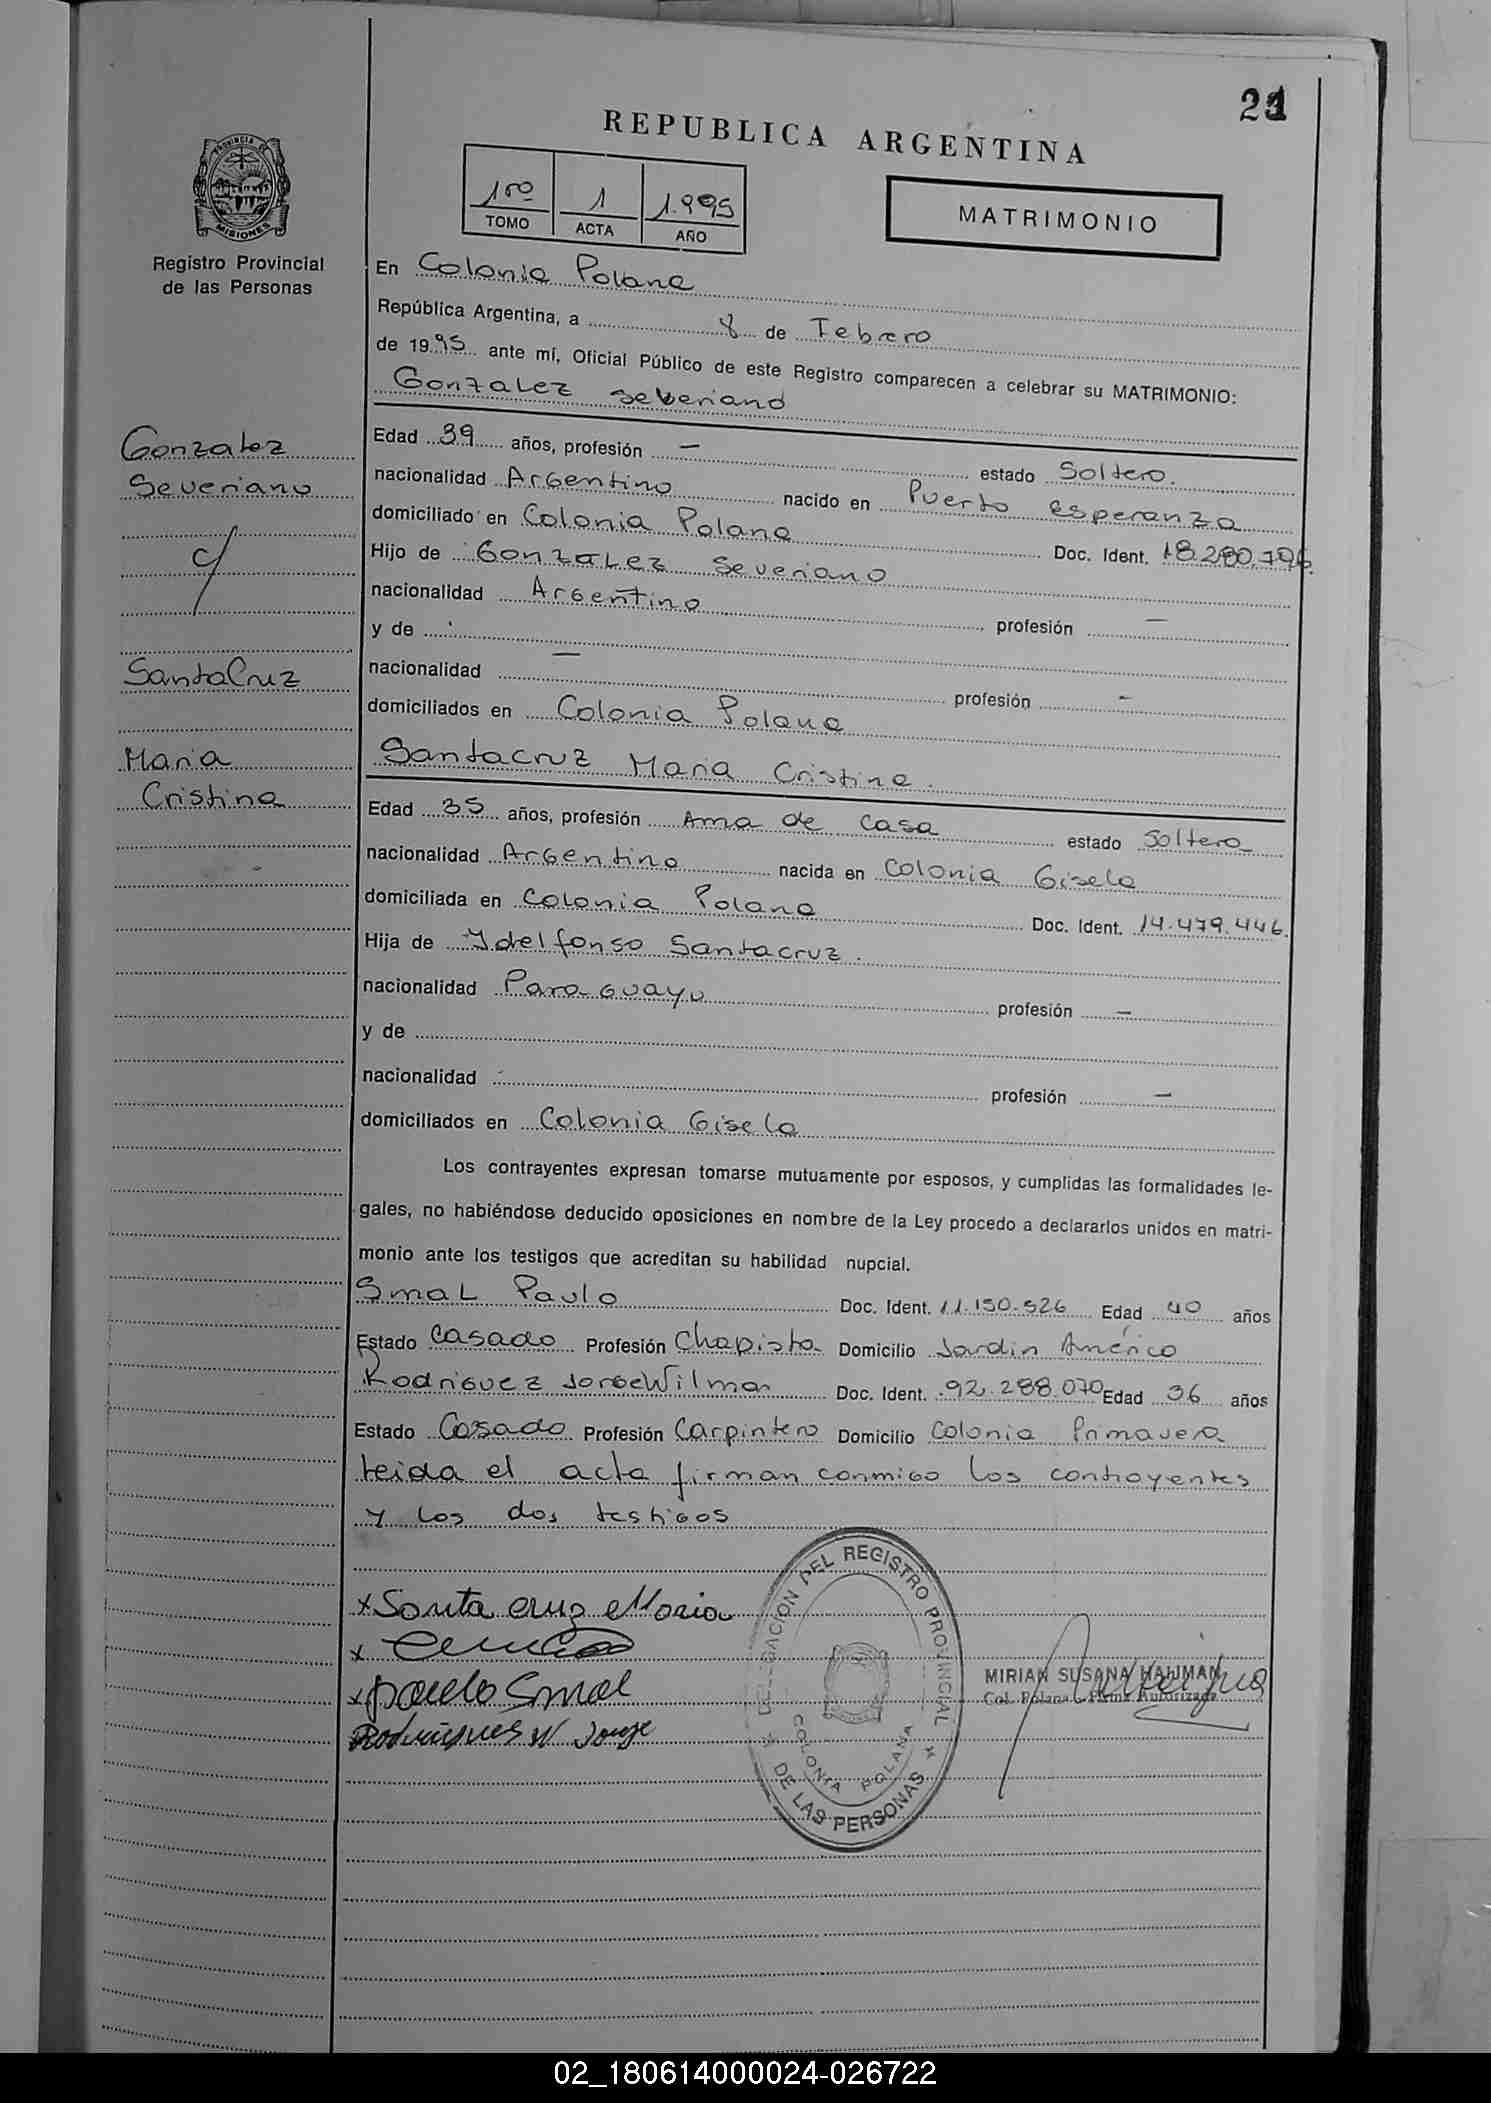 21
REPUBLICA ARGENTINA
PROVINCIA DE MISIONES
Registro Provincial
de las Personas
1ro 1 1.995
TOMO ACTA AÑO
MATRIMONIO
En Colonia Polana
República Argentina, a 8 de Febrero
de 1995 ante mí, Oficial Público de este Registro comparecen a celebrar su MATRIMONIO:
Gonzalez Severiano
Gonzalez
Severiano
c/
SantaCruz
Maria
Cristina
Edad 39 años, profesión — estado Soltero.
nacionalidad Argentino nacido en Puerto Esperanza
domiciliado en Colonia Polana Doc. Ident. 18.280.796.
Hijo de Gonzalez Severiano
nacionalidad Argentino profesión —
y de
nacionalidad — profesión -
domiciliados en Colonia Polana
Santacruz Maria Cristina.
Edad 35 años, profesión Ama de casa estado Soltera
nacionalidad Argentina nacida en Colonia Gisela
domiciliada en Colonia Polana Doc. Ident. 14.479.446.
Hija de Ydelfonso Santacruz.
nacionalidad Paraguayo profesión —
y de
nacionalidad profesión —
domiciliados en Colonia Gisela
Los contrayentes expresan tomarse mutuamente por esposos, y cumplidas las formalidades le-
gales, no habiéndose deducido oposiciones en nombre de la Ley procedo a declararlos unidos en matri-
monio ante los testigos que acreditan su habilidad nupcial.
Smal Paulo Doc. Ident. 11.150.526 Edad 40 años
Estado Casado Profesión Chapista Domicilio Jardin América
Rodriguez Jorge Wilmar Doc. Ident. 92.288.070 Edad 36 años
Estado Casado Profesión Carpintero Domicilio Colonia Primavera
leida el acta firman conmigo los contrayentes
y los dos testigos
x Santa cruz Maria
x
x paulo Smal
Rodrigues W Jorge
DELEGACION DEL REGISTRO PROVINCIAL DE LAS PERSONAS
COLONIA POLANA
MIRIAN SUSANA HAUMAN
Col. Polana - Firma Autorizada
02_180614000024-026722